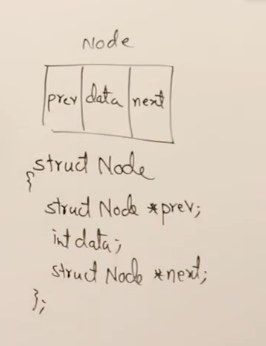 Node
prev data next
struct Node
{
struct Node *prev;
int data;
struct Node *next;
};